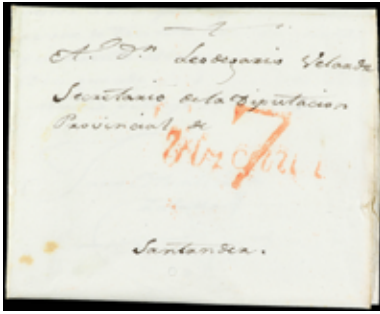 A. Dn Leodegario Velarde
Secretario de la Diputacion
Provincial de
7
Santander.